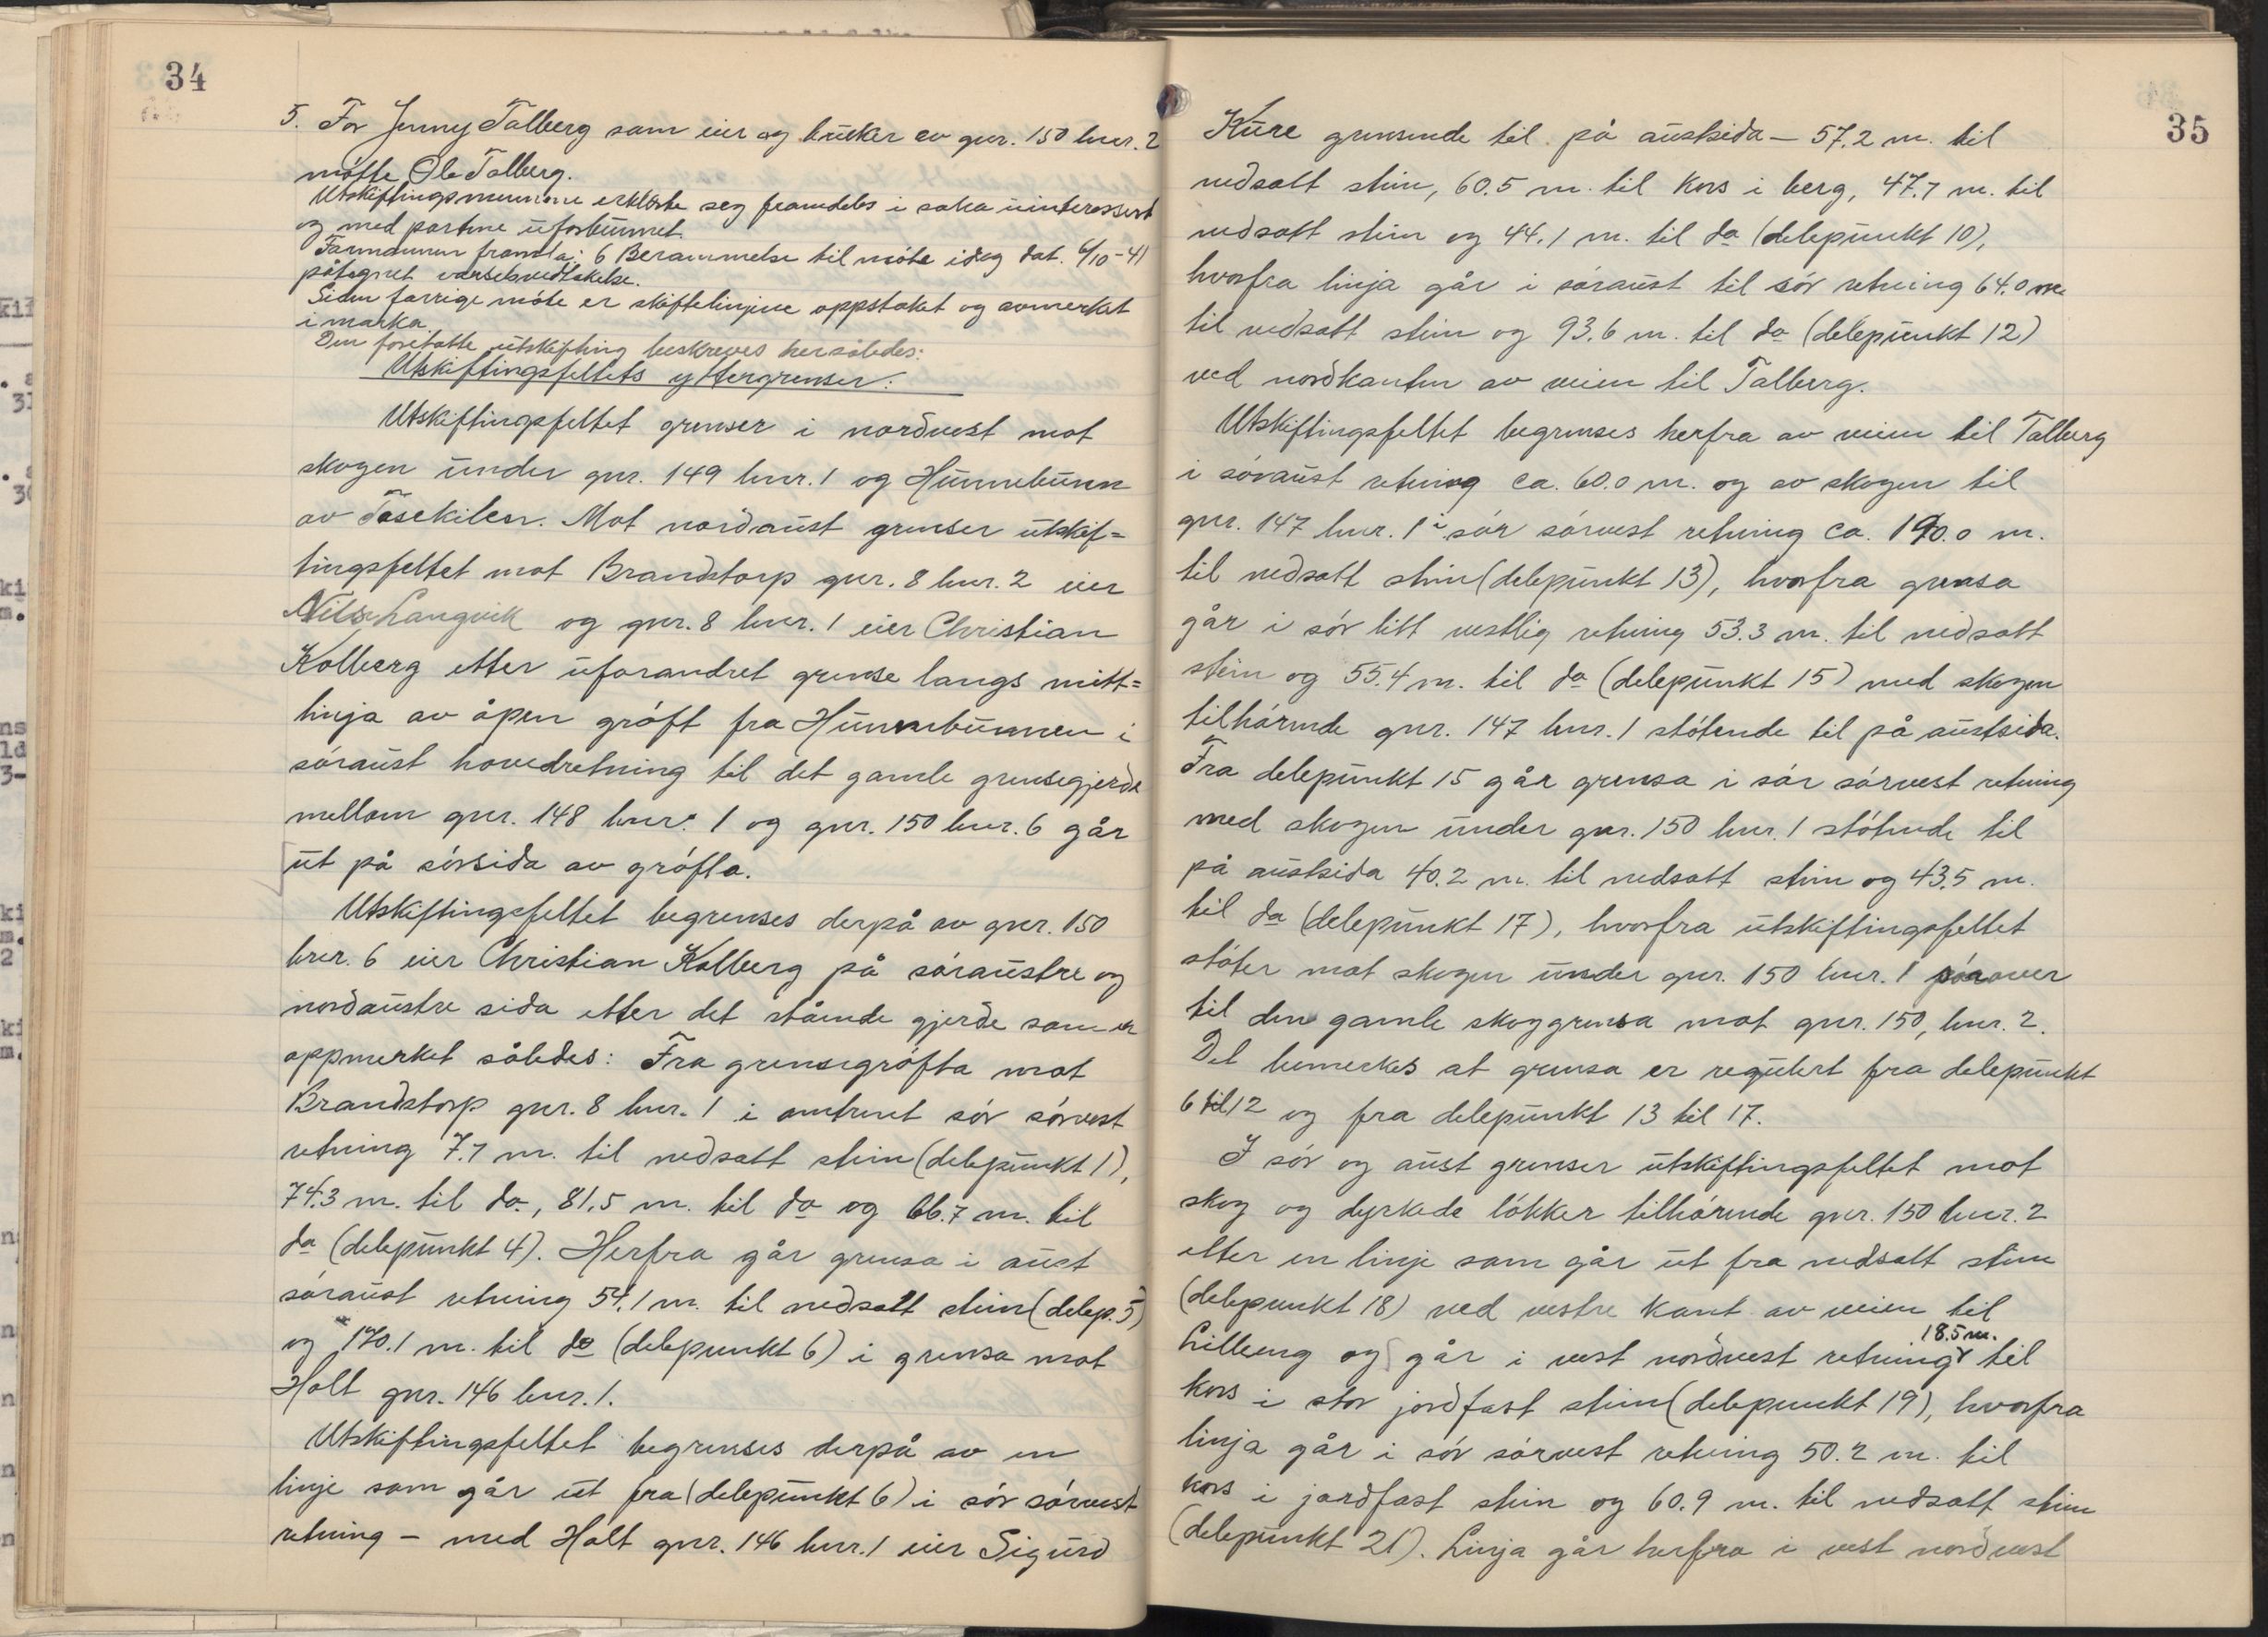 34
5. For Jenny Talberg som eier og bruker av gnr. 150 bnr. 2
møtte Ole Talberg.
Utskiftingsmennene erklærte seg framdeles i saka uinteressert
og med partene uforbunnet.
Formannen framla: 6 Berammelse til møte idag dat. 6/10-41
påtegnet varselsvedtakelse.
Siden forrige møte er skiftelinjene oppstaket og avmerket
i marka.
Den foretatte utskifting beskreves hersåledes:
Utskiftingsfeltets yttergrenser:
Utskiftingsfeltet grenser i nordvest mot
skogen under gnr. 149 bnr. 1 og Hunnebunn
av Tosekilen. Mot nordaust grenser utskif=
tingsfeltet mot Brandstorp gnr. 8 bnr. 2 eier
Nils Langvik og gnr. 8 bnr. 1 eier Christian
Kolberg etter uforandret grense langs mitt=
linja av åpen grøft fra Hunnebunnen i
søraust hovedretning til det gamle grensegjerde
mellom gnr. 148 bnr. 1 og gnr. 150 bnr. 6 går
ut på sørsida av grøfta.
Utskiftingsfeltet begrenses derpå av gnr. 150
bnr. 6 eier Christian Kolberg på søraustre og
nordaustre sida etter det stående gjerde som er
oppmerket således: Fra grensegrøfta mot
Brandstorp gnr. 8 bnr. 1 i omtrent sør sørvest
retning 7.7 m. til nedsatt stein (delepunkt 1),
74.3 m. til do, 81.5 m. til do og 66.7 m. til
do (delepunkt 4). Herfra går grensa i aust
søraust retning 54.1 m. til nedsatt stein (delep. 5)
og 170.1 m. til do (delepunkt 6) i grensa mot
Holt gnr. 146 bnr. 1.
Utskiftingsfeltet begrenses derpå av en
linje som går ut fra (delepunkt 6) i sør sørvest
retning - med Holt gnr. 146 bnr. 1 eier Sigurd
35
Kure grensende til på austsida - 57.2 m. til
nedsatt stein, 60.5 m. til kors i berg, 47.7 m. til
nedsatt stein og 44.1 m. til do (delepunkt 10),
hvorfra linja går i søraust til sør retning 64.0 m.
til nedsatt stein og 93.6 m. til do (delepunkt 12)
ved nordkanten av veien til Talberg.
Utskiftingsfeltet begrenses herfra av veien til Talberg
i søraust retning ca. 60.0 m. og av skogen til
gnr. 147 bnr. 1 i sør sørvest retning ca. 190.0 m.
til nedsatt stein (delepunkt 13), hvorfra grensa
går i sør litt vestlig retning 53.3 m. til nedsatt
stein og 55.4 m. til do (delepunkt 15) med skogen
tilhørende gnr. 147 bnr. 1 støtende til på austsida.
Fra delepunkt 15 går grensa i sør sørvest retning
med skogen under gnr. 150 bnr. 1 støtende til
på austsida 40.2 m. til nedsatt stein og 43.5 m.
til do (delepunkt 17), hvorfra utskiftingsfeltet
støter mot skogen under gnr. 150 bnr. 1 sørover
til den gamle skoggrensa mot gnr. 150, bnr. 2.
Det bemerkes at grensa er regulert fra delepunkt
6 til 12 og fra delepunkt 13 til 17.
I sør og aust grenser utskiftingsfeltet mot
skog og dyrkede løkker tilhørende gnr. 150 bnr. 2
etter en linje som går ut fra nedsatt stein
(delepunkt 18) ved vestre kant av veien til
Lilleng og går i vest nordvest retning 18.5 m. til
kors i stor jordfast stein (delepunkt 19), hvorfra
linja går i sør sørvest retning 50.2 m. til
kors i jordfast stein og 60.9 m. til nedsatt stein
(delepunkt 21). Linja går herfra i vest nordvest